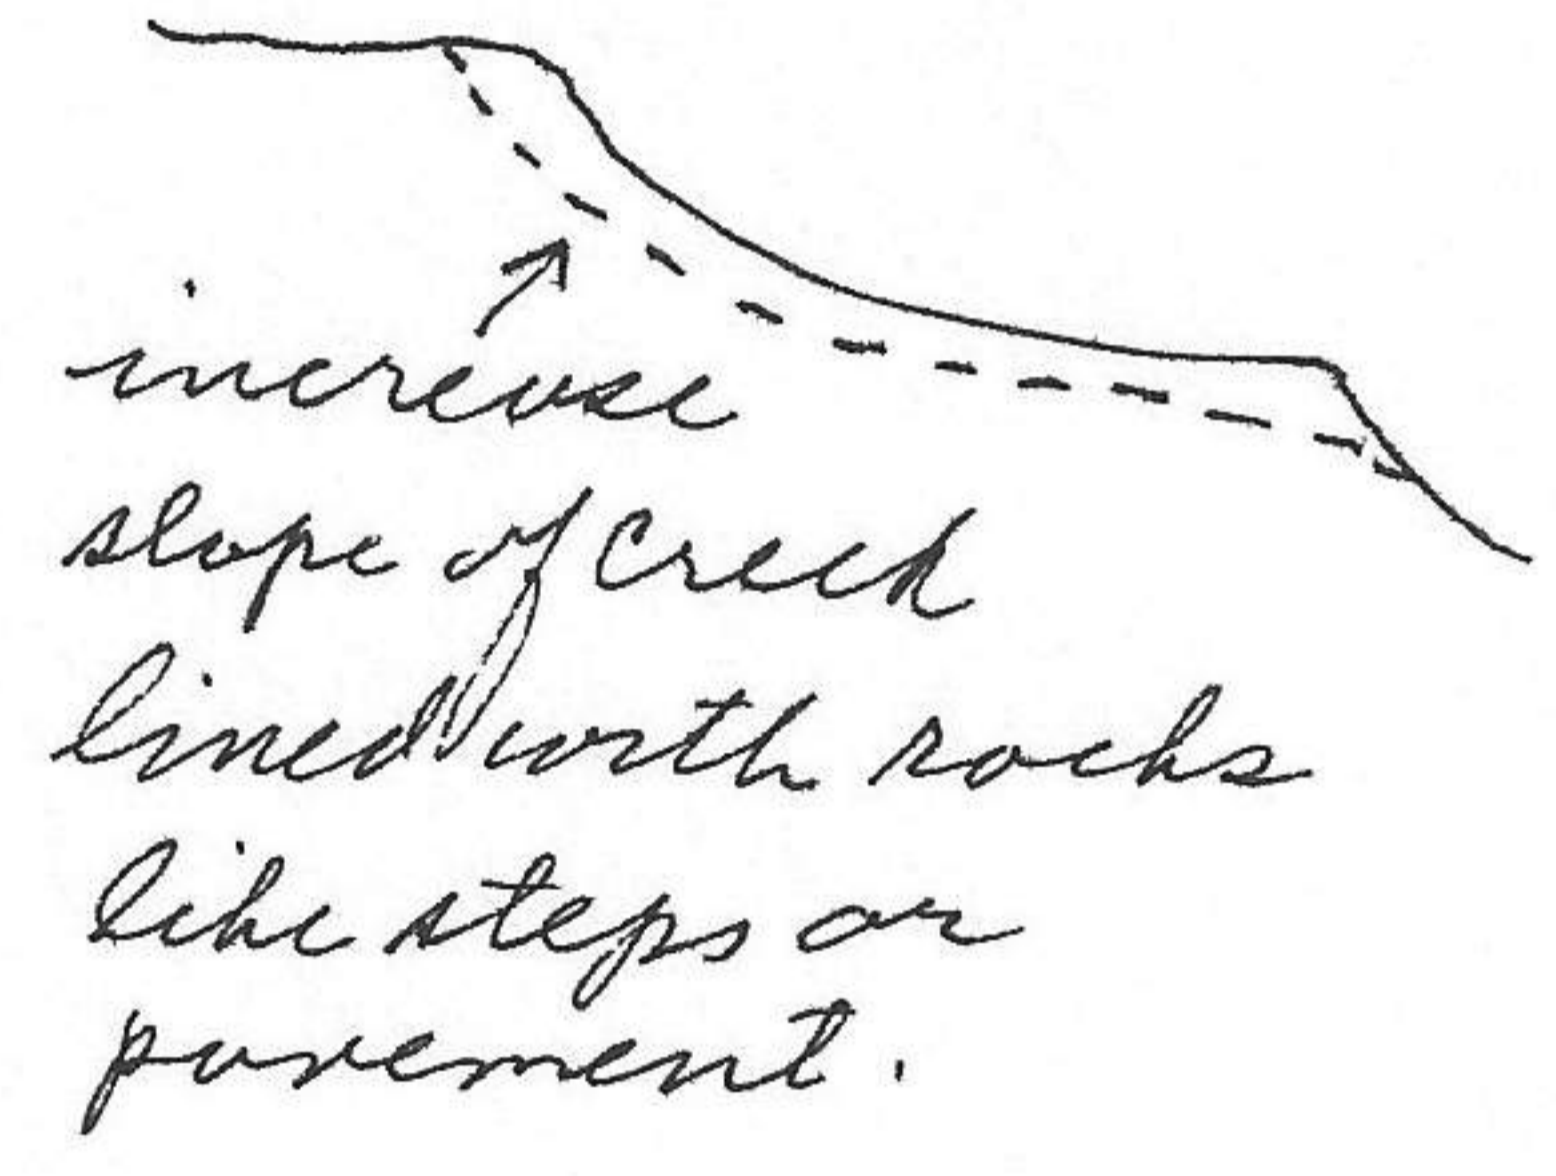 increase
slope of creek
lined with rocks
like steps or
pavement.